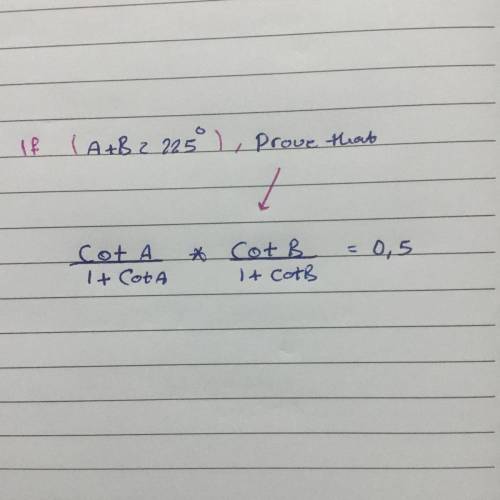 If (A+B = 225°), Prove that
Cot A / 1 + Cot A * Cot B / 1 + Cot B = 0,5